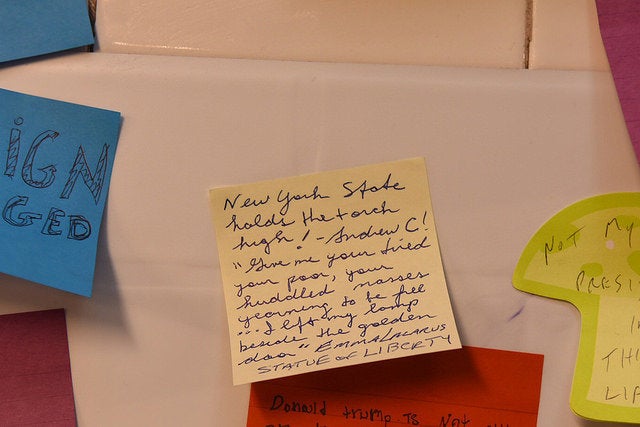 iGN
GED
New York State
holds the torch
high! - Andrew C!
"Give me your tired
your poor, your
huddled masses
yearning to be free
... I lift my lamp
beside the golden
door" EMMA LAZARUS
STATUE OF LIBERTY
NOT MY
PRESI
THI
Donald trump is Not